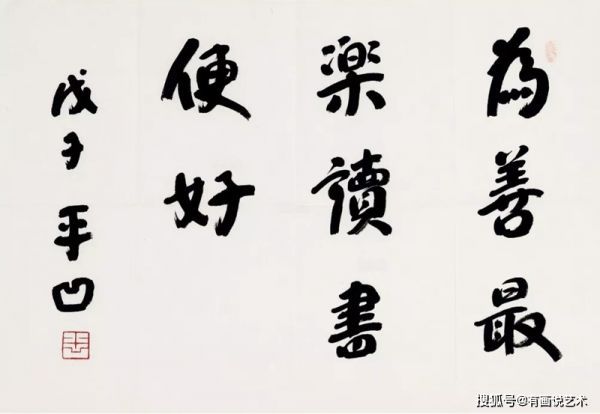 為善最
楽讀書
便好
戊子 平凹
搜狐号@有画说艺术